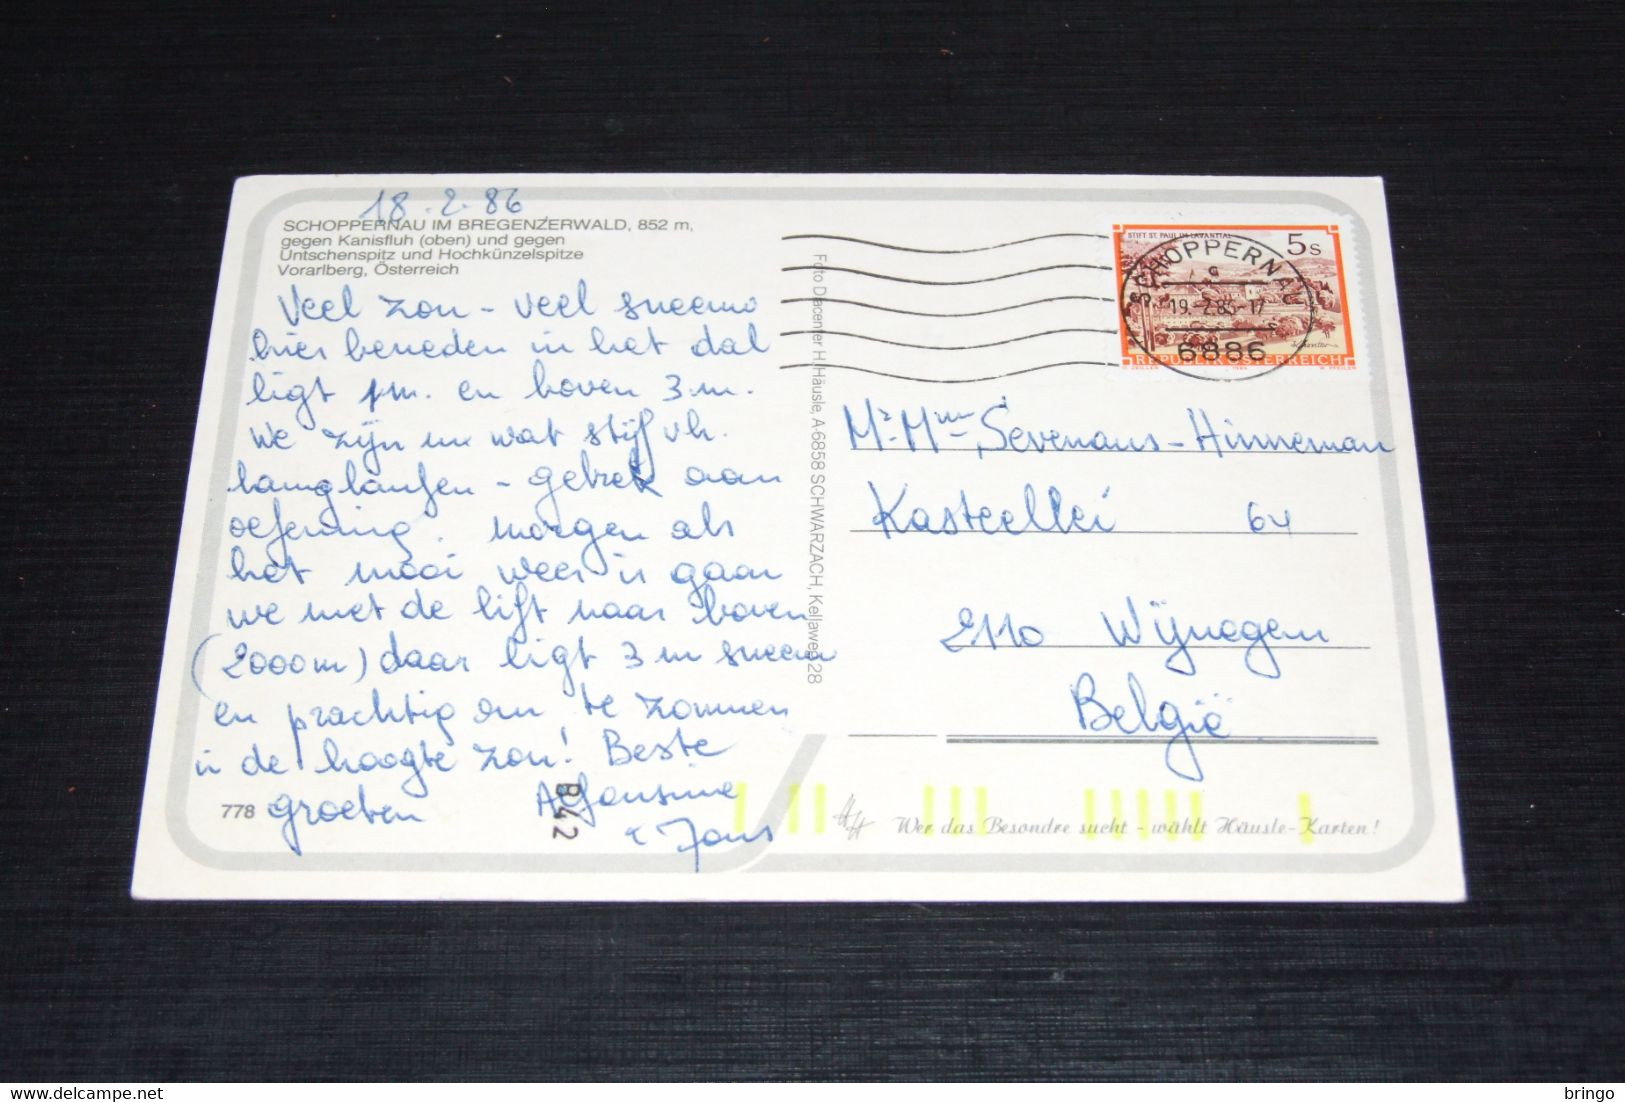 18.2.86
SCHOPPERNAU IM BREGENZERWALD, 852 m,
gegen Kanisfluh (oben) und gegen
Üntschenspitz und Hochkünzelspitze
Vorarlberg, Österreich
Veel zon - veel sneeuw
hier beneden in het dal
ligt 1m. en boven 3 m.
We zijn nu wat stijf v.h.
langlaufen - gebrek aan
oefening. Morgen als
het mooi weer is gaan
we met de lift naar boven
(2000m) daar ligt 3 m sneeuw
en prachtig om te zonnen
in de hoogte zon! Beste
groeten Alfonsine
& Jans
778
842
Foto Diacenter H. Häusle, A-6858 SCHWARZACH, Kellaweg 28
STIFT ST. PAUL IM LAVANTTAL
5 S
REPUBLIK ÖSTERREICH
SCHOPPERNAU
19.-2.86-17
6886
Mr. Mme Sevenans-Hinneman
Kasteellei 64
2110 Wijnegem
België
HH Wer das Besondre sucht - wählt Häusle-Karten!
bringo